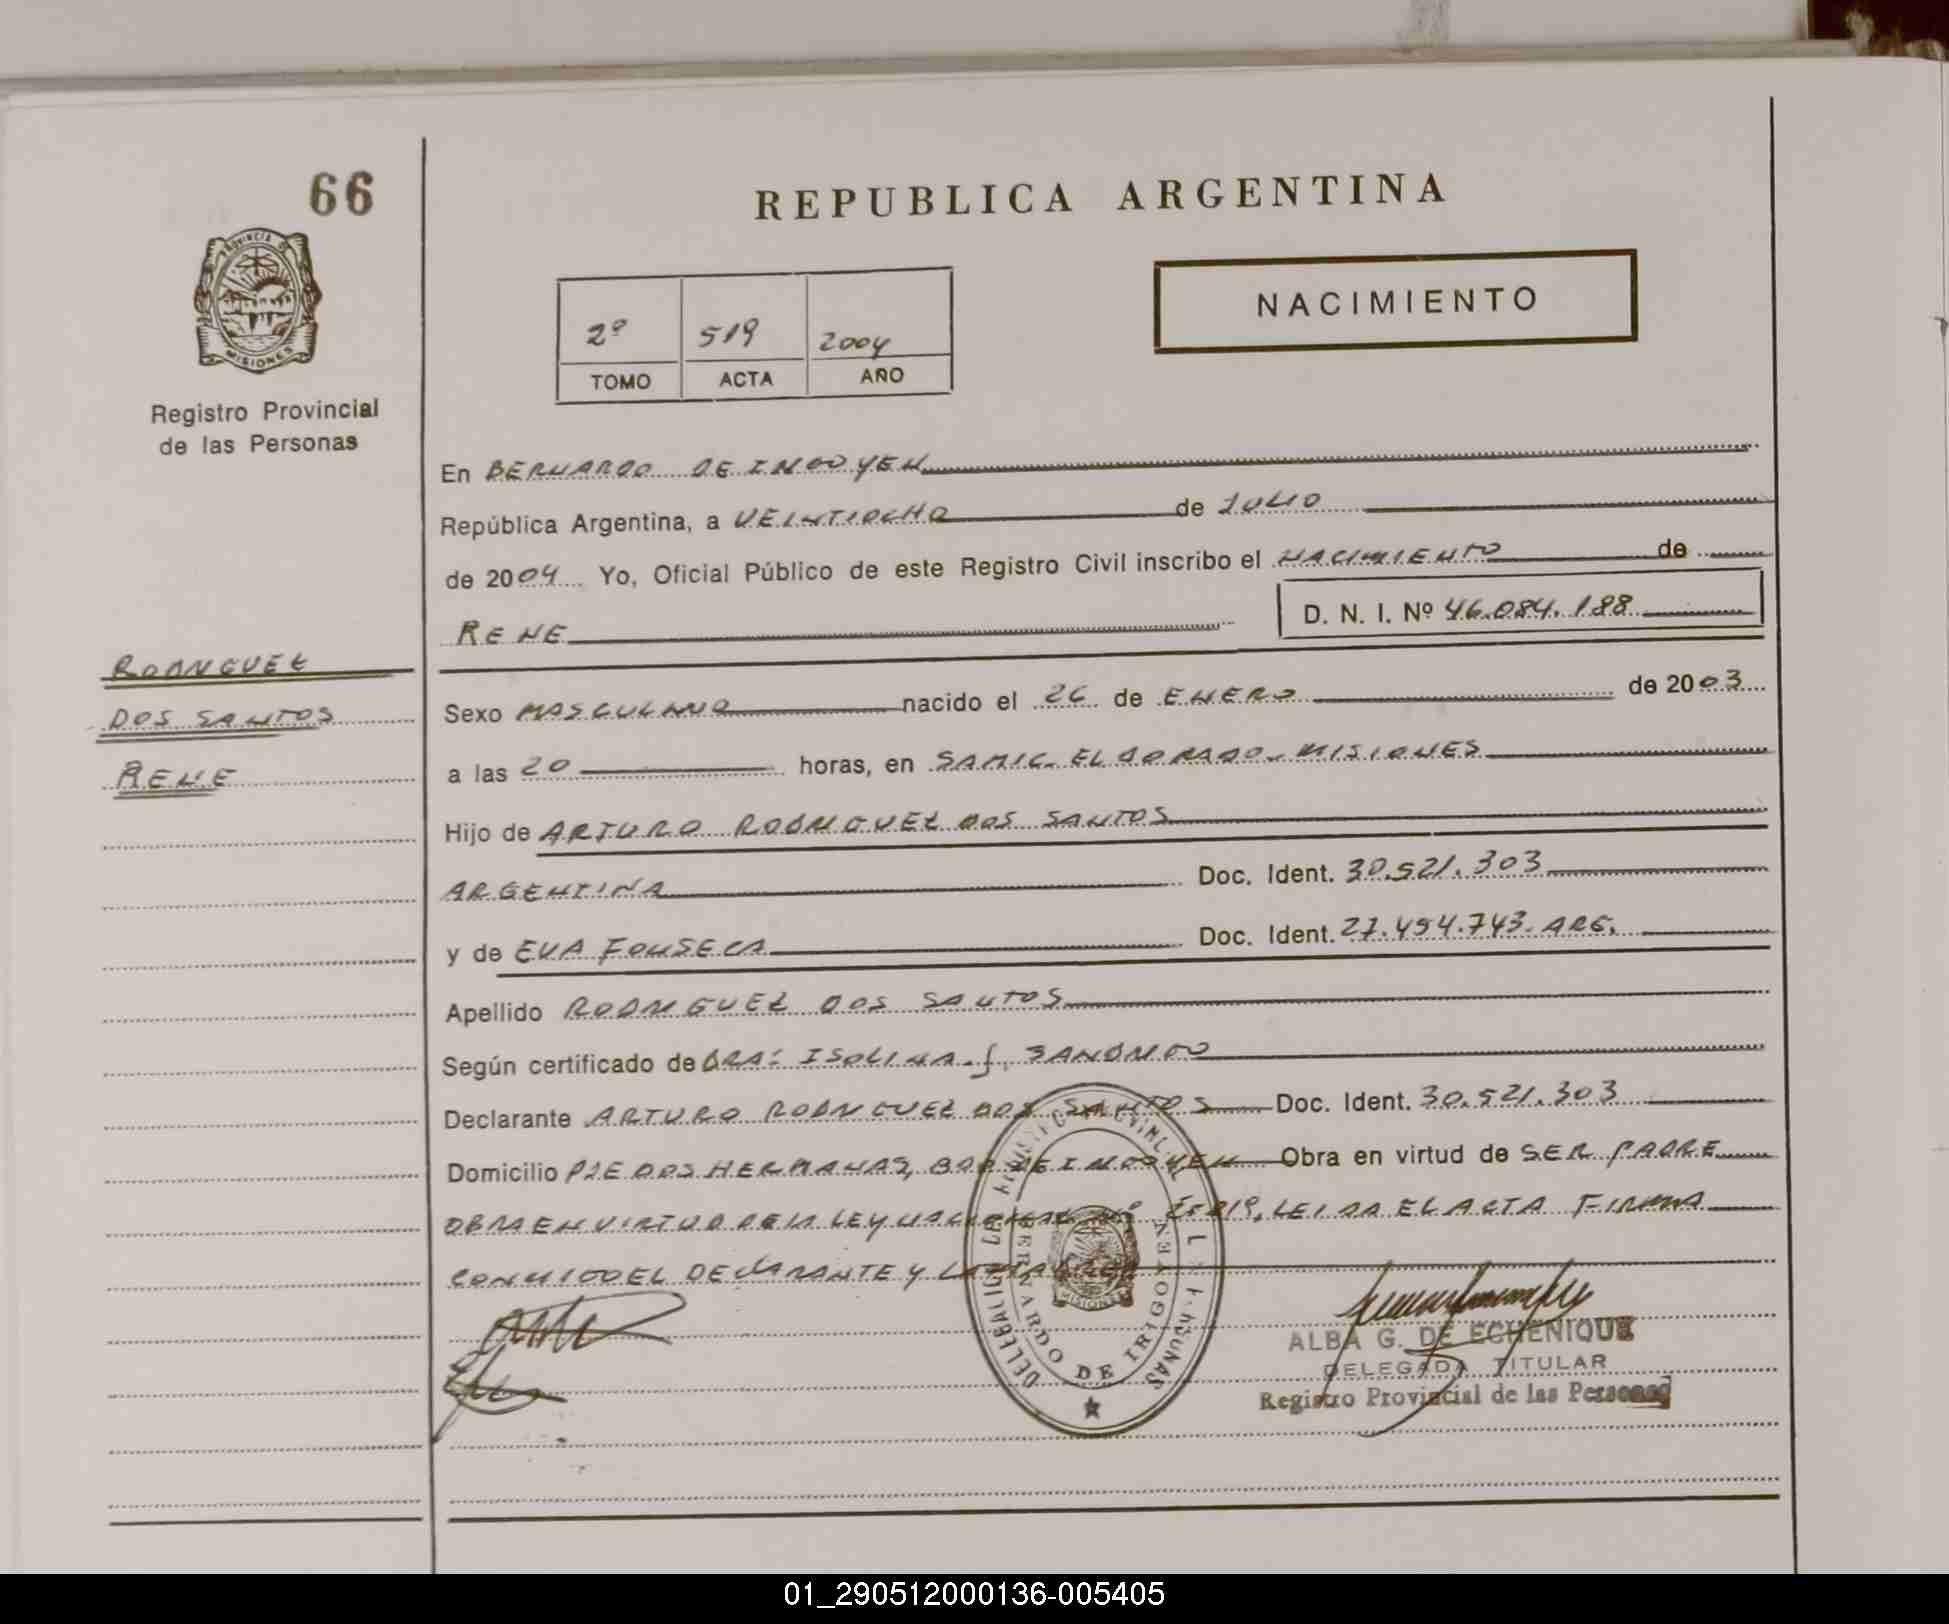 66
REPUBLICA ARGENTINA
PROVINCIA DE
MISIONES
NACIMIENTO
2º 519 2004
TOMO ACTA AÑO
Registro Provincial
de las Personas
En BERNARDO DE IRIGOYEN
República Argentina, a VEINTIOCHO de JULIO
de 2004 Yo, Oficial Público de este Registro Civil inscribo el NACIMIENTO de
RENE D. N. I. Nº 46.084.188
RODRIGUEZ
DOS SANTOS
RENE
Sexo MASCULINO nacido el 26 de ENERO de 2003
a las 20 horas, en SAMIC. ELDORADO - MISIONES
Hijo de ARTURO RODRIGUEZ DOS SANTOS
ARGENTINA Doc. Ident. 30.521.303
y de EVA FONSECA Doc. Ident. 27.494.743. ARG.
Apellido RODRIGUEZ DOS SANTOS
Según certificado de DRA: ISOLINA
Declarante ARTURO RODRIGUEZ DOS SANTOS Doc. Ident. 30.521.303
Domicilio PJE DOS HERMANAS, BDO DE IRIGOYEN Obra en virtud de SER PADRE
OBRA EN VIRTUD DE LA LEY NACIONAL Nº LEIDA EL ACTA FIRMA
CONMIGO EL DECLARANTE Y LA
DELEGACION DEL REGISTRO PROVINCIAL DE LAS PERSONAS
BERNARDO DE IRIGOYEN
MISIONES
ALBA G. DE ECHENIQUE
DELEGADA TITULAR
Registro Provincial de las Personas
01_290512000136-005405